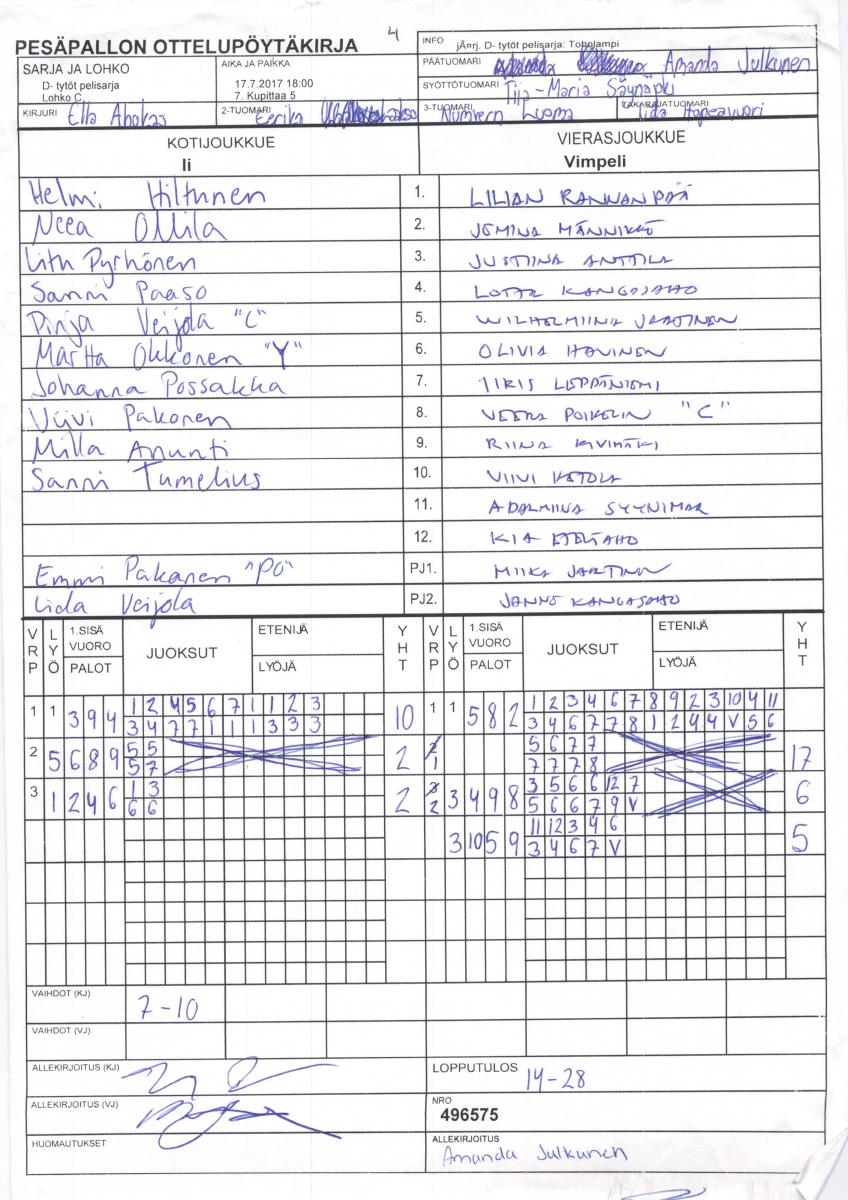 4
PESÄPALLON OTTELUPÖYTÄKIRJA
INFO jÄ¤rj. D- tytöt pelisarja: Toholampi
SARJA JA LOHKO
D- tytöt pelisarja
Lohko C,
AIKA JA PAIKKA
17.7.2017 18:00
7. Kupittaa 5
PÄÄTUOMARI Amanda Julkunen
SYÖTTÖTUOMARI Tiia-Maria Säynäpki
KIRJURI Ella Ahokas
2-TUOMARI Eerika
3-TUOMARI Luoma
TAKARAJATUOMARI Iida Hopeavuori
KOTIJOUKKUE
Ii
VIERASJOUKKUE
Vimpeli
Helmi Hiltunen 1. LILIAN RANNANPÄÄ
Neea Ollila 2. JEMINA MÄNNIKKÖ
Pyrhönen 3. JUSTIINA ANTTILA
Sanni Paaso 4. LOTTA KANGASAHO
Pinja Veijola "C" 5. WILHELMIINA JAATINEN
Martta Okkonen "Y" 6. OLIVIA HAVINEN
Johanna Possakka 7. IIRIS LEPPÄNIEMI
Viivi Pakonen 8. VEERA POIKELIN "C"
Milla Anunti 9. RIINA KIVIMÄKI
Sanni Tumelius 10. VIIVI KETOLA
11. ADALMIINA SYYNIMAA
12. KIA
Emmi Pakanen "PO" PJ1. MIIKA JAATINEN
Iida Veijola PJ2. JANNE KANGASAHO
VRP LYÖ 1.SISÄ VUORO PALOT JUOKSUT ETENIJÄ LYÖJÄ YHT VRP LYÖ 1.SISÄ VUORO PALOT JUOKSUT ETENIJÄ LYÖJÄ YHT
1 1 3 9 4 1 2 4 5 6 7 1 1 2 3 10 1 1 5 8 2 1 2 3 4 6 7 8 9 2 3 10 4 11
3 4 7 7 1 1 1 3 3 3 3 4 6 7 7 8 1 2 4 4 V 5 6
2 5 6 8 9 5 5 2 1 5 6 7 7 17
5 7 7 7 7 8
3 1 2 4 6 1 3 2 2 3 4 9 8 3 5 6 6 12 7 6
6 6 5 6 6 7 9 V
3 10 5 9 11 12 3 4 6 5
3 4 6 7 V
VAIHDOT (KJ) 7-10
VAIHDOT (VJ)
ALLEKIRJOITUS (KJ)
LOPPUTULOS 14-28
ALLEKIRJOITUS (VJ)
NRO
496575
HUOMAUTUKSET
ALLEKIRJOITUS
Amanda Julkunen